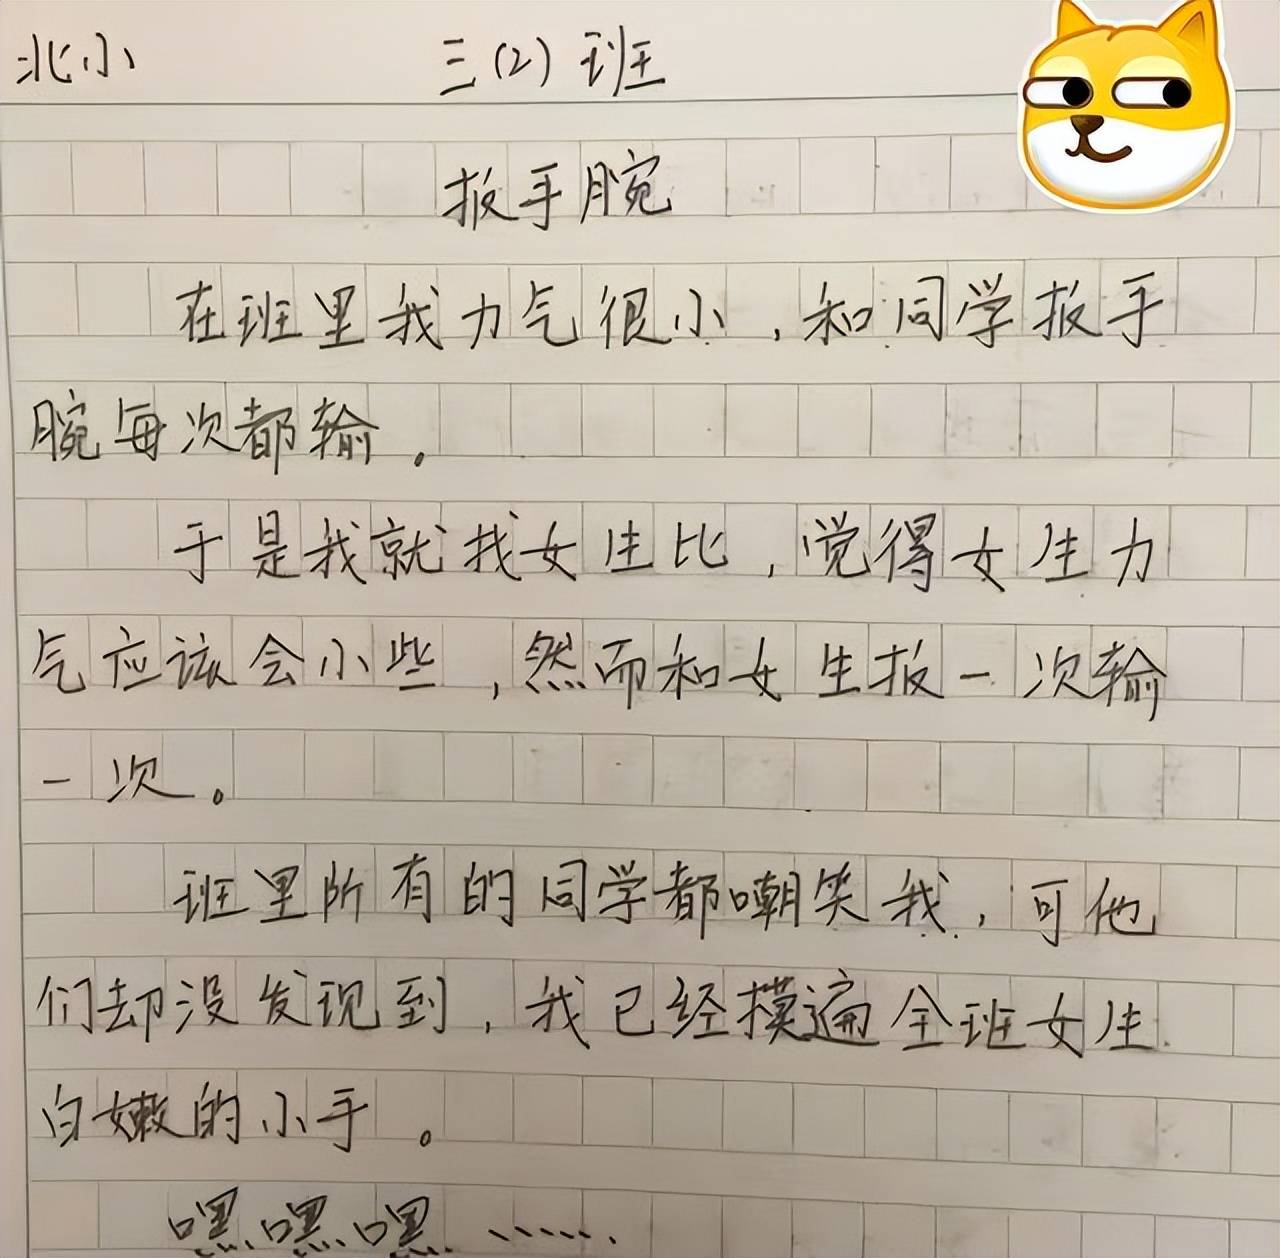 北小 三(2)班
扳手腕
在班里我力气很小,和同学扳手
腕每次都输。
于是我就找女生比,觉得女生力
气应该会小些,然而和女生扳一次输
一次。
班里所有的同学都嘲笑我,可他
们却没发现到,我已经摸遍全班女生
白嫩的小手。
嘿嘿嘿……